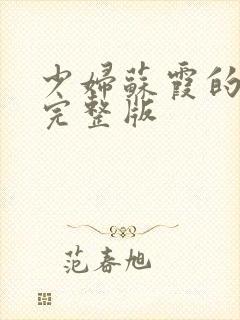 少婦蘇霞的
完整版
范春旭